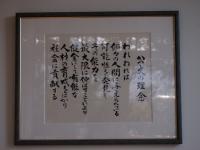 公文の理念
われわれは
個々の人間に与えられている
可能性を発見し
その能力を
最大限に伸ばすことにより
健全にして有能な
人材の育成をはかり
社会に貢献する